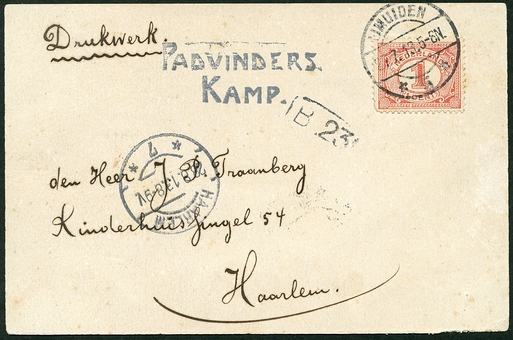 Drukwerk.
PADVINDERS
KAMP.
IJMUIDEN
NEDERLAND
1
B 23
7
HAARLEM
den Heer J. P. Traanberg
Kinderhuissingel 54
Haarlem.